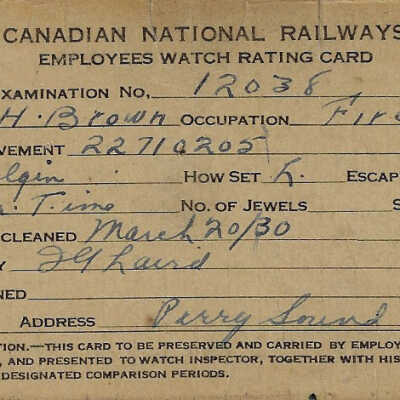 CANADIAN NATIONAL RAILWAYS
EMPLOYEES WATCH RATING CARD
EXAMINATION NO, 12038
H. Brown OCCUPATION Fire
VEMENT 22710205
lgin HOW SET L. ESCAP
. Time NO. OF JEWELS S
CLEANED March 20/30
Y Laird
NED
ADDRESS Parry Sound
TION.—THIS CARD TO BE PRESERVED AND CARRIED BY EMPLOY
, AND PRESENTED TO WATCH INSPECTOR, TOGETHER WITH HIS
DESIGNATED COMPARISON PERIODS.